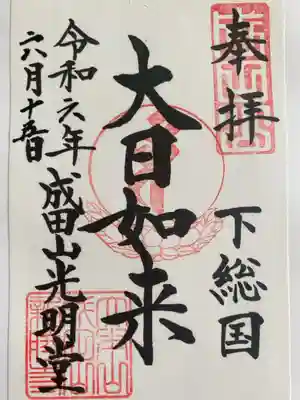 奉拝
下総国
大日如来
成田山光明堂
令和六年
六月十五日